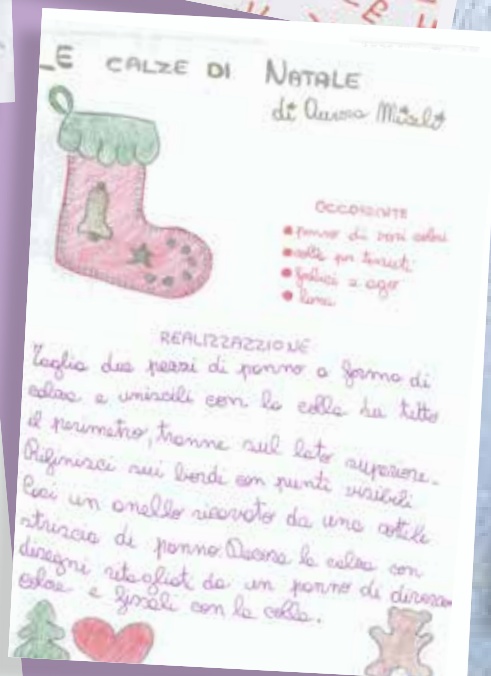 LE CALZE DI NATALE
di Aurora
OCCORRENTE
panno di vari colori
colla per tessuti
forbici e ago
lana
REALIZZAZZIONE
Taglia due pezzi di panno a forma di
calza e uniscili con la colla su tutto
il perimetro, tranne sul lato superiore.
Rifinisci sui bordi con punti visibili
Cuci un anello ricavato da una sottile
striscia di panno. Decora la calza con
disegni ritagliati da un panno di diverso
colore e fissali con la colla.